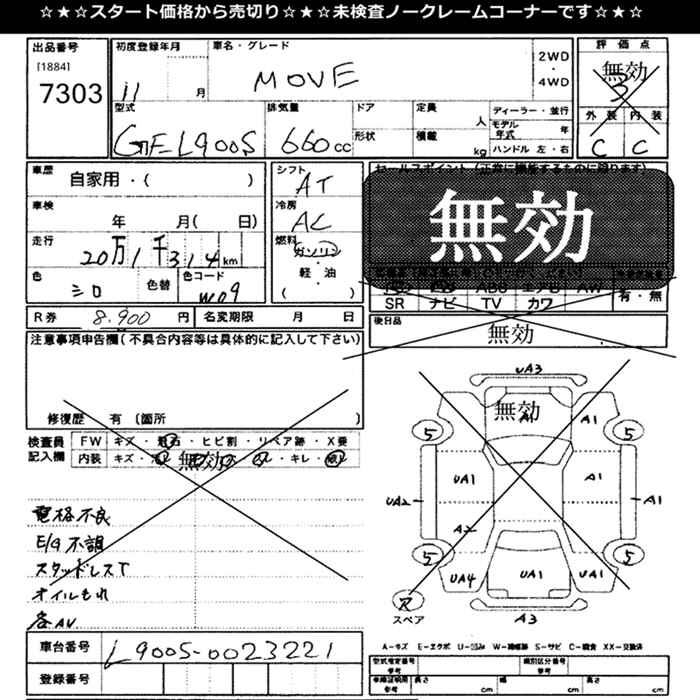 ☆★☆★スタート価格から売切り☆★☆★未検査ノークレームコーナーです☆★☆★
出品番号
[1884]
7303
初度登録年月
11
月
車名・グレード
MOVE
2WD
・
4WD
評価点
無効
3
外装
内装
C
C
型式
GF-L900S
排気量
660cc
ドア
形状
定員
人
積載
kg
ディーラー・並行
モデル年式
年
ハンドル 左・右
車歴
自家用・( )
シフト
AT
セールスポイント(正常に機能するものに限ります)
無効
車検
年 月( 日)
冷房
AC
走行
20万1千314km
燃料
ガソリン
・
軽・油
・
( )
色
シロ
色替
色コード
W09
SR ナビ TV カワ
有・無
R券
8.900円
名変期限 月 日
後日品
無効
注意事項申告欄(不具合内容等は具体的に記入して下さい)
修復歴 有 (箇所
検査員記入欄
FW キズ・飛石・ヒビ割・リペア跡・X要
内装 キズ・
無効
・キレ・
電格不良
E/G不調
スタッドレスT
オイルもれ
各AU
UA3
無効
A1
A1
5
5
UA1
A1
UA2
A1
A2
5
5
UA4
UA1
UA1
R
スペア
A3
車台番号
L900S-0023221
登録番号
A-キズ E-エクボ U-凹み W-補修跡 S-サビ C-腐食 XX-交換済
型式指定番号
参考
類別区分番号
参考
車検証明用
参考
長さ
cm
幅
cm
高さ
cm